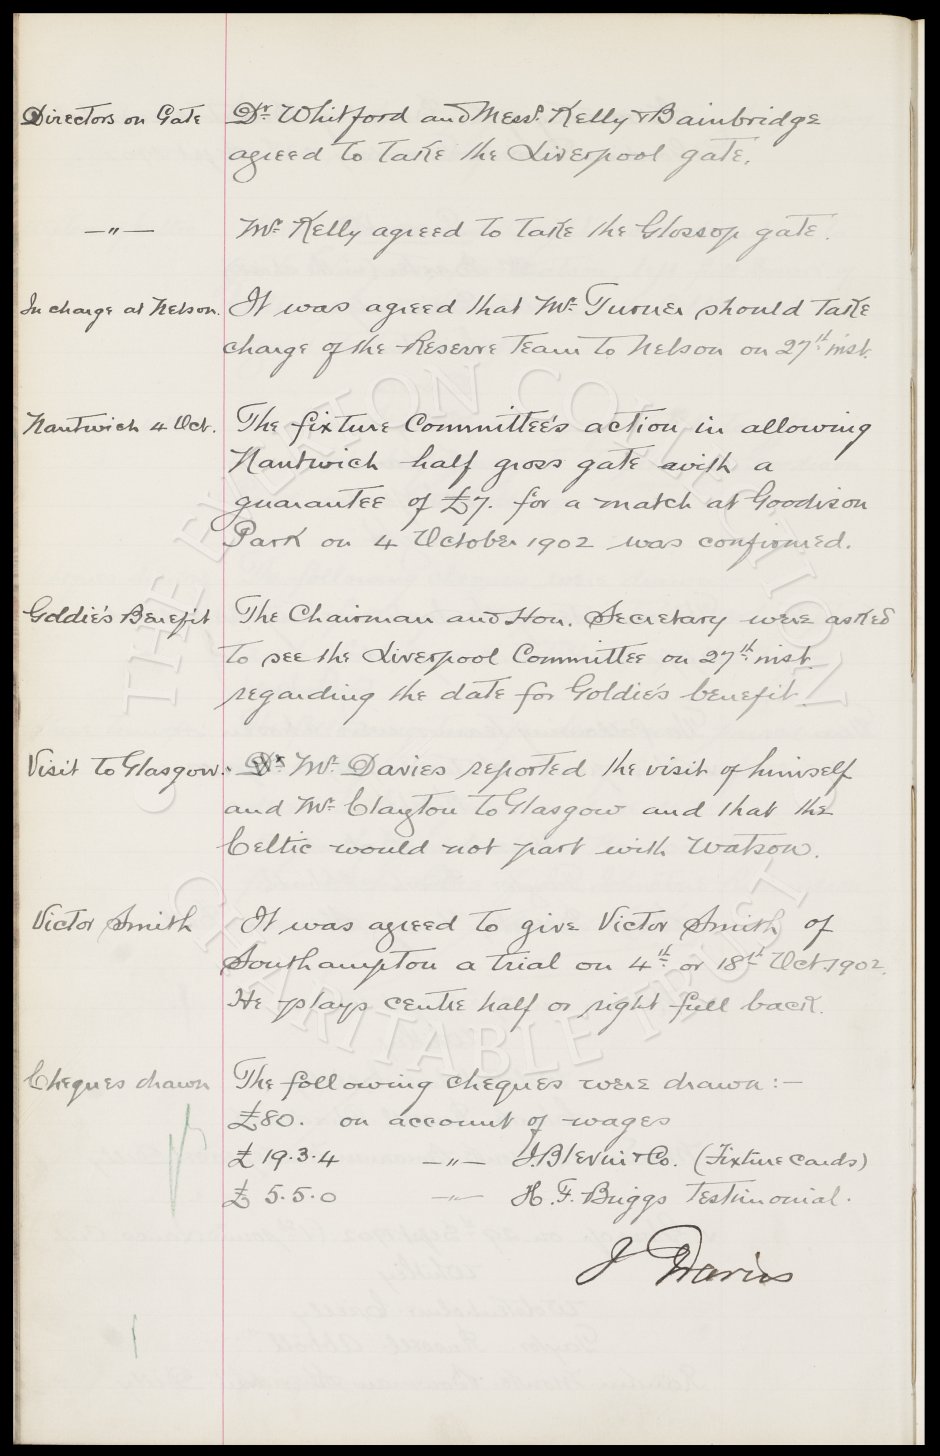 Directors on Gate Dr. Whitford and Messrs. Kelly & Bainbridge
agreed to take the Liverpool gate.
—"— Mr. Kelly agreed to take the Glossop gate.
In charge at Nelson. It was agreed that Mr. Turner should take
charge of the Reserve Team to Nelson on 27th inst.
Nantwich 4 Oct. The fixture Committee's action in allowing
Nantwich half gross gate with a
guarantee of £7. for a match at Goodison
Park on 4 October 1902 was confirmed.
Goldie's Benefit The Chairman and Hon. Secretary were asked
to see the Liverpool Committee on 27th inst.
regarding the date for Goldie's benefit.
Visit to Glasgow. Mr. Davies reported the visit of himself
and Mr. Clayton to Glasgow and that the
Celtic would not part with Watson.
Victor Smith It was agreed to give Victor Smith of
Southampton a trial on 4th or 18th Oct. 1902.
He plays centre half or right full back.
Cheques drawn The following cheques were drawn :—
£80. on account of wages
£19.3.4 —"— J. Blevin & Co. (Fixture Cards)
£5.5.0 —"— H. F. Briggs Testimonial.
J Davies
THE EVERTON COLLECTION
CHARITABLE TRUST